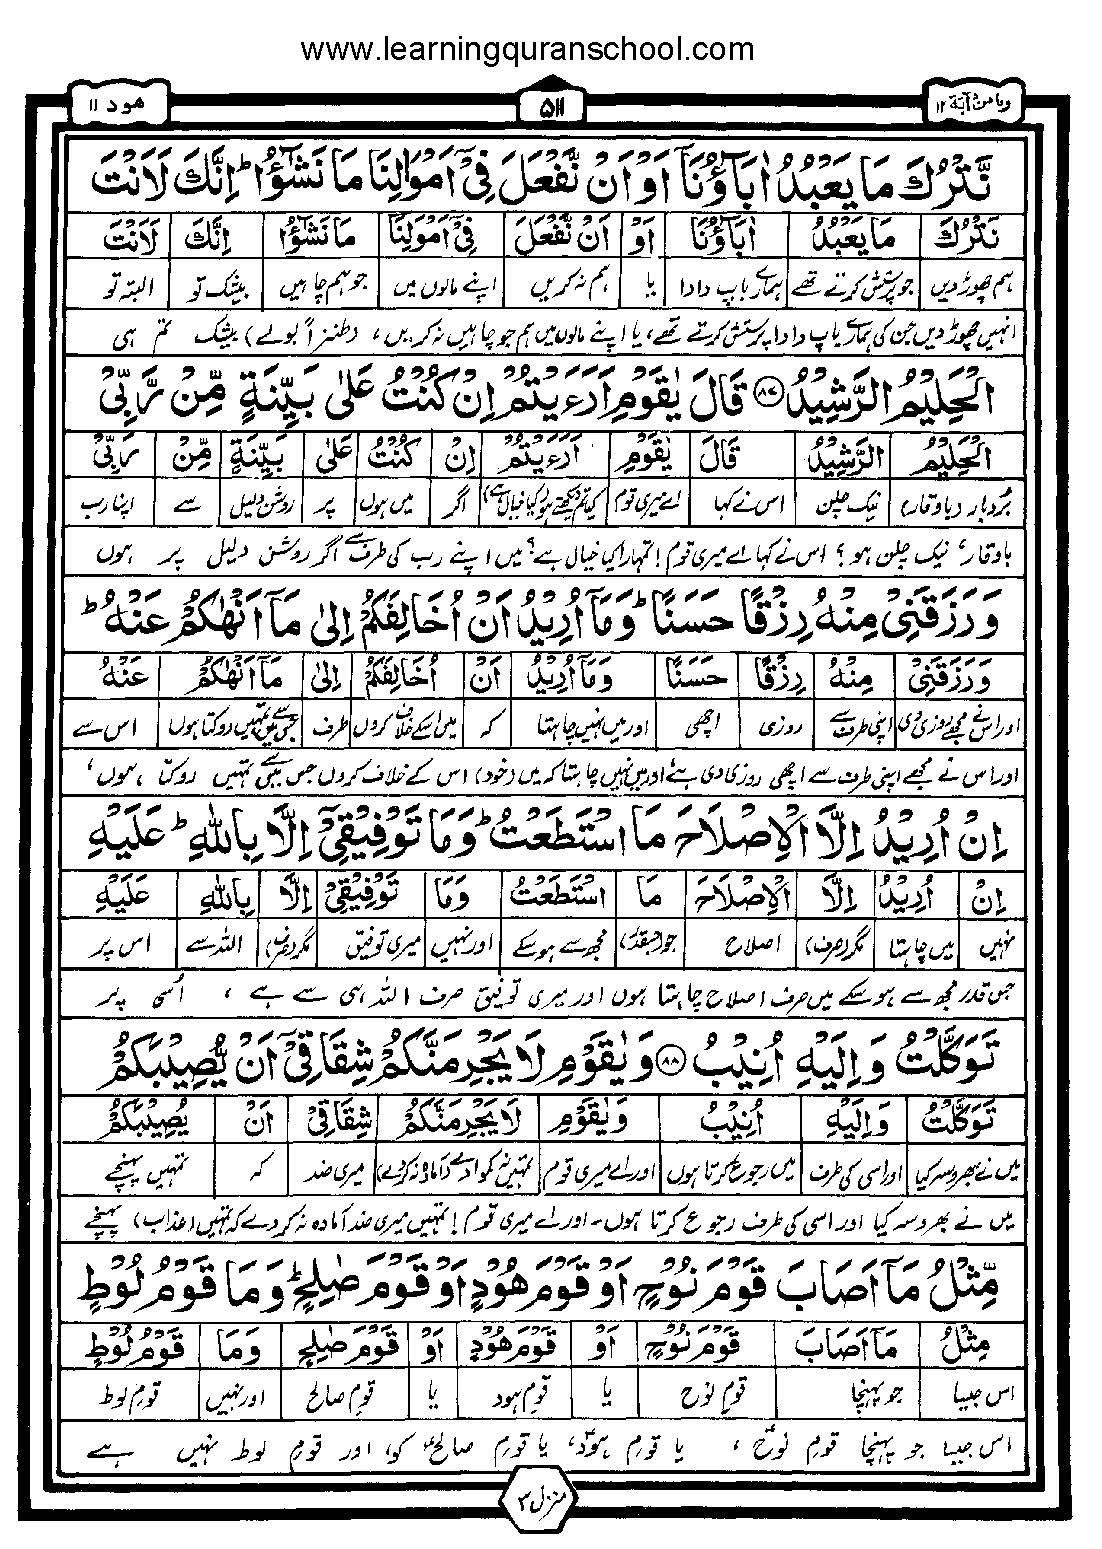 www.learningquranschool.com
وما من دآبة ۱۲
۵۱۱
هود ۱۱
نَّتْرُكَ مَا يَعْبُدُ اٰبَآؤُنَاۤ اَوْ اَنْ نَّفْعَلَ فِیْۤ اَمْوَالِنَا مَا نَشٰٓؤُا ؕ اِنَّكَ لَاَنْتَ
نَتْرُكَ مَا يَعْبُدُ اٰبَآؤُنَا اَوْ اَنْ نَّفْعَلَ فِیْۤ اَمْوَالِنَا مَا نَشٰٓؤُا اِنَّكَ لَاَنْتَ
ہم چھوڑ دیں جو پرستش کرتے تھے ہمارے باپ دادا یا ہم نہ کریں اپنے مالوں میں جو ہم چاہیں بیشک تو البتہ تو
انہیں چھوڑ دیں جن کی ہمارے باپ دادا پرستش کرتے تھے، یا اپنے مالوں میں ہم جو چاہیں نہ کریں، (طنزاً بولے) بیشک تم ہی
الْحَلِيْمُ الرَّشِيْدُ ۸۷ قَالَ يٰقَوْمِ اَرَءَيْتُمْ اِنْ كُنْتُ عَلٰى بَيِّنَةٍ مِّنْ رَّبِّیْ
الْحَلِيْمُ الرَّشِيْدُ قَالَ يٰقَوْمِ اَرَءَيْتُمْ اِنْ كُنْتُ عَلٰى بَيِّنَةٍ مِّنْ رَبِّیْ
بُردبار (باوقار) نیک چلن اس نے کہا اے میری قوم کیا تم دیکھتے ہو (کیا خیال ہے) اگر میں ہوں پر روشن دلیل سے اپنا رب
باوقار، نیک چلن ہو؟ اس نے کہا اے میری قوم! تمہارا کیا خیال ہے؟ میں اپنے رب کی طرف سے اگر روشن دلیل پر ہوں
وَرَزَقَنِیْ مِنْهُ رِزْقًا حَسَنًا ؕ وَمَاۤ اُرِيْدُ اَنْ اُخَالِفَكُمْ اِلٰى مَاۤ اَنْهٰىكُمْ عَنْهُ ؕ
وَرَزَقَنِیْ مِنْهُ رِزْقًا حَسَنًا وَمَاۤ اُرِيْدُ اَنْ اُخَالِفَكُمْ اِلٰى مَاۤ اَنْهٰىكُمْ عَنْهُ
اور اس نے مجھے روزی دی اپنی طرف سے روزی اچھی اور میں نہیں چاہتا کہ میں اسکے خلاف کروں طرف جس سے میں تمہیں روکتا ہوں اس سے
اور اس نے مجھے اپنی طرف سے اچھی روزی دی ہے اور میں نہیں چاہتا کہ میں (خود) اس کے خلاف کروں جس سے میں تمہیں روکتا ہوں،
اِنْ اُرِيْدُ اِلَّا الْاِصْلَاحَ مَا اسْتَطَعْتُ ؕ وَمَا تَوْفِيْقِیْۤ اِلَّا بِاللّٰهِ ؕ عَلَيْهِ
اِنْ اُرِيْدُ اِلَّا الْاِصْلَاحَ مَا اسْتَطَعْتُ وَمَا تَوْفِيْقِیْۤ اِلَّا بِاللّٰهِ عَلَيْهِ
نہیں میں چاہتا مگر (صرف) اصلاح جو (جسقدر) مجھ سے ہو سکے اور نہیں میری توفیق مگر (صرف) اللہ سے اس پر
جس قدر مجھ سے ہو سکے میں صرف اصلاح چاہتا ہوں اور میری توفیق صرف اللہ ہی سے ہے، اُسی پر
تَوَكَّلْتُ وَاِلَيْهِ اُنِيْبُ ۸۸ وَيٰقَوْمِ لَا يَجْرِمَنَّكُمْ شِقَاقِیْۤ اَنْ يُّصِيْبَكُمْ
تَوَكَّلْتُ وَاِلَيْهِ اُنِيْبُ وَيٰقَوْمِ لَا يَجْرِمَنَّكُمْ شِقَاقِیْ اَنْ يُصِيْبَكُمْ
میں نے بھروسہ کیا اور اسی کی طرف میں رجوع کرتا ہوں اور اے میری قوم میری ضد کہ تمہیں پہنچے
میں نے بھروسہ کیا اور اسی کی طرف رجوع کرتا ہوں۔ اور اے میری قوم! تمہیں میری ضد آمادہ نہ کر دے کہ تمہیں (عذاب) پہنچے
مِّثْلُ مَاۤ اَصَابَ قَوْمَ نُوْحٍ اَوْ قَوْمَ هُوْدٍ اَوْ قَوْمَ صٰلِحٍ ؕ وَمَا قَوْمُ لُوْطٍ
مِثْلُ مَاۤ اَصَابَ قَوْمَ نُوْحٍ اَوْ قَوْمَ هُوْدٍ اَوْ قَوْمَ صٰلِحٍ وَمَا قَوْمُ لُوْطٍ
اس جیسا جو پہنچا قومِ نوح یا قومِ ہود یا قومِ صالح اور نہیں قومِ لوط
اس جیسا جو پہنچا قومِ نوحؑ، یا قومِ ہودؑ، یا قومِ صالحؑ کو، اور قومِ لوط نہیں ہے
منزل ۳